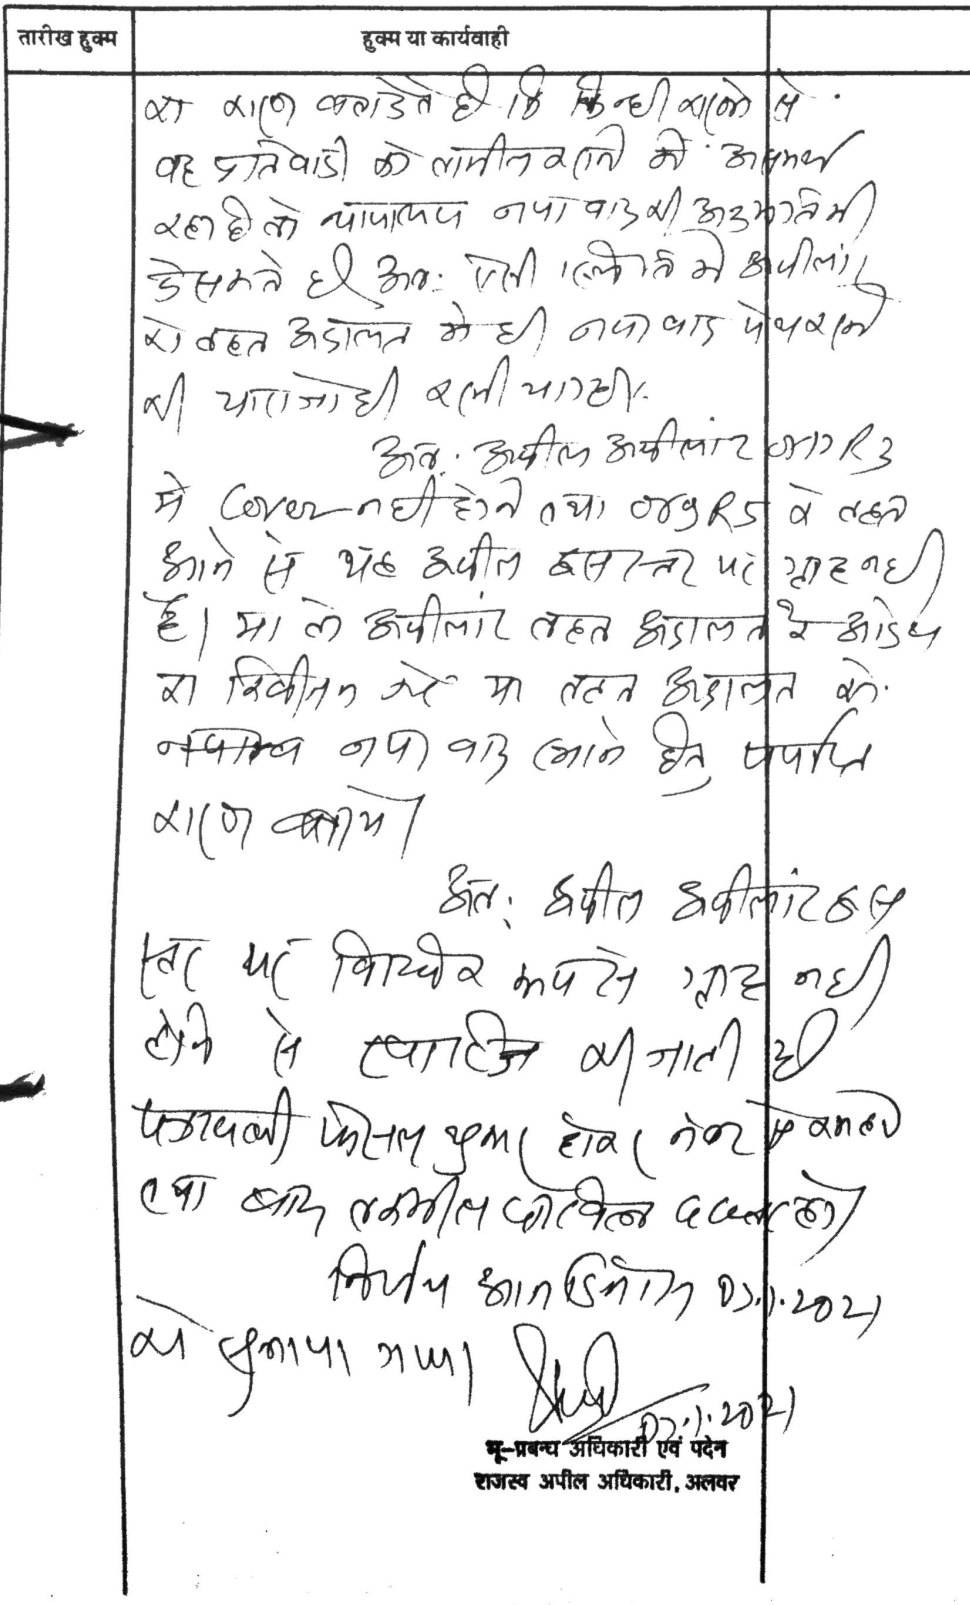 तारीख हुक्म
हुक्म या कार्यवाही
का कारण बताते है कि किन्ही कारणो से
वह प्रतिवादी को तामील कराने मे असमर्थ
रहा है तो न्यायालय नया वाद की अनुमति भी
दे सकते है अतः ऐसी स्थिति मे अपीलांट
को तहत अदालत मे ही नया वाद पेश करने
की चाराजोही करनी चाहिए।
अतः अपील अपीलांट R3
मे cover नही होने तथा O9R5 के तहत
आने से यह अपील इस स्तर पर ग्राह्य नही
है। या तो अपीलांट तहत अदालत के आदेश
का करे या तहत अदालत को
नया वाद लाने हेतु पर्याप्त
कारण बताये।
अतः अपील अपीलांट इस
स्तर पर ग्राह्य नही
होने से खारिज की जाती है
पत्रावली फैसल शुमार होकर नंबर से कम हो
तथा बाद तकमील दाखिल दफ्तर हो।
निर्णय आज दिनांक 07.1.2021
को सुनाया गया।
07.1.2021
भू-प्रबन्ध अधिकारी एवं पदेन
राजस्व अपील अधिकारी, अलवर